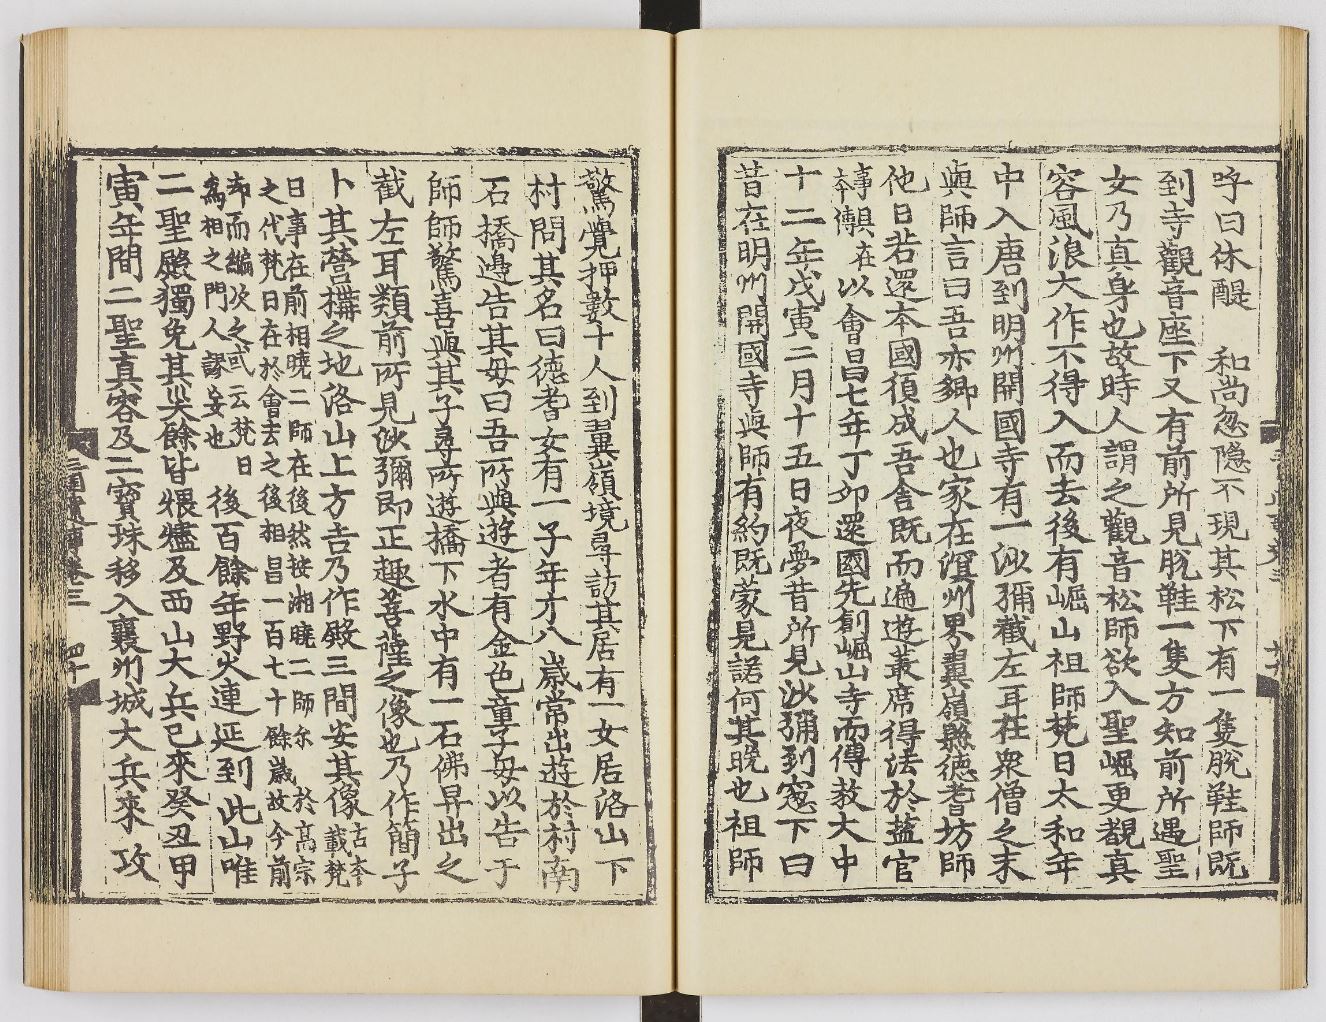 呼曰休醍　和尚忽隐不現其松下有一隻脫鞋師旣
到寺觀音座下又有前所見脫鞋一隻方知前所遇聖
女乃真身也故時人謂之觀音松師欲入聖崛更覩真
容風浪大作不得入而去後有崛山祖師梵日太和年
中入唐到明州開國寺有一沙彌截左耳在衆僧之末
與師言曰吾亦鄕人也家在溟州界翼嶺縣德耆坊師
他日若還本國須成吾舍旣而遍遊叢席得法於盐官
事具在本傳以會昌七年丁卯還國先創崛山寺而傳敎大中
十二年戊寅二月十五日夜夢昔所見沙彌到窓下曰
昔在明州開國寺與師有約旣蒙見諾何其晩也祖師
驚覺押數十人到翼嶺境尋訪其居有一女居洛山下
村問其名曰德耆女有一子年才八歲常出遊於村南
石橋邊告其母曰吾所與遊者有金色童子母以告于
師師驚喜與其子尋所遊橋下水中有一石佛舁出之
截左耳類前所見沙彌即正趣菩薩之像也乃作簡子
卜其營構之地洛山上方吉乃作殿三間安其像
古夲載梵
日事在前相曉二師在後然按湘曉二師尔於高宗
之代梵日在於會去之後相昌一百七十餘歲故今前
却而編次之或云梵日
爲相之門人謬妄也
後百餘年野火連延到此山唯
二聖殿獨免其灾餘皆煨燼及西山大兵已來癸丑甲
寅年間二聖真容及二寶珠移入襄州城大兵來攻
三國遺事卷三